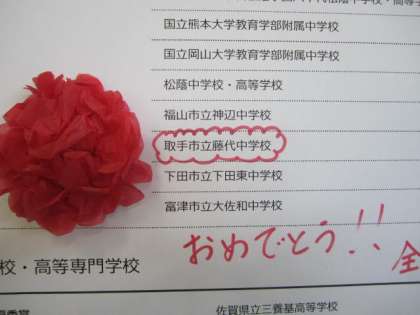 国立熊本大学教育学部附属中学校
国立岡山大学教育学部附属中学校
松蔭中学校・高等学校
福山市立神辺中学校
取手市立藤代中学校
下田市立下田東中学校
富津市立大佐和中学校
おめでとう!!
全
校・高等専門学校
佐賀県立三養基高等学校